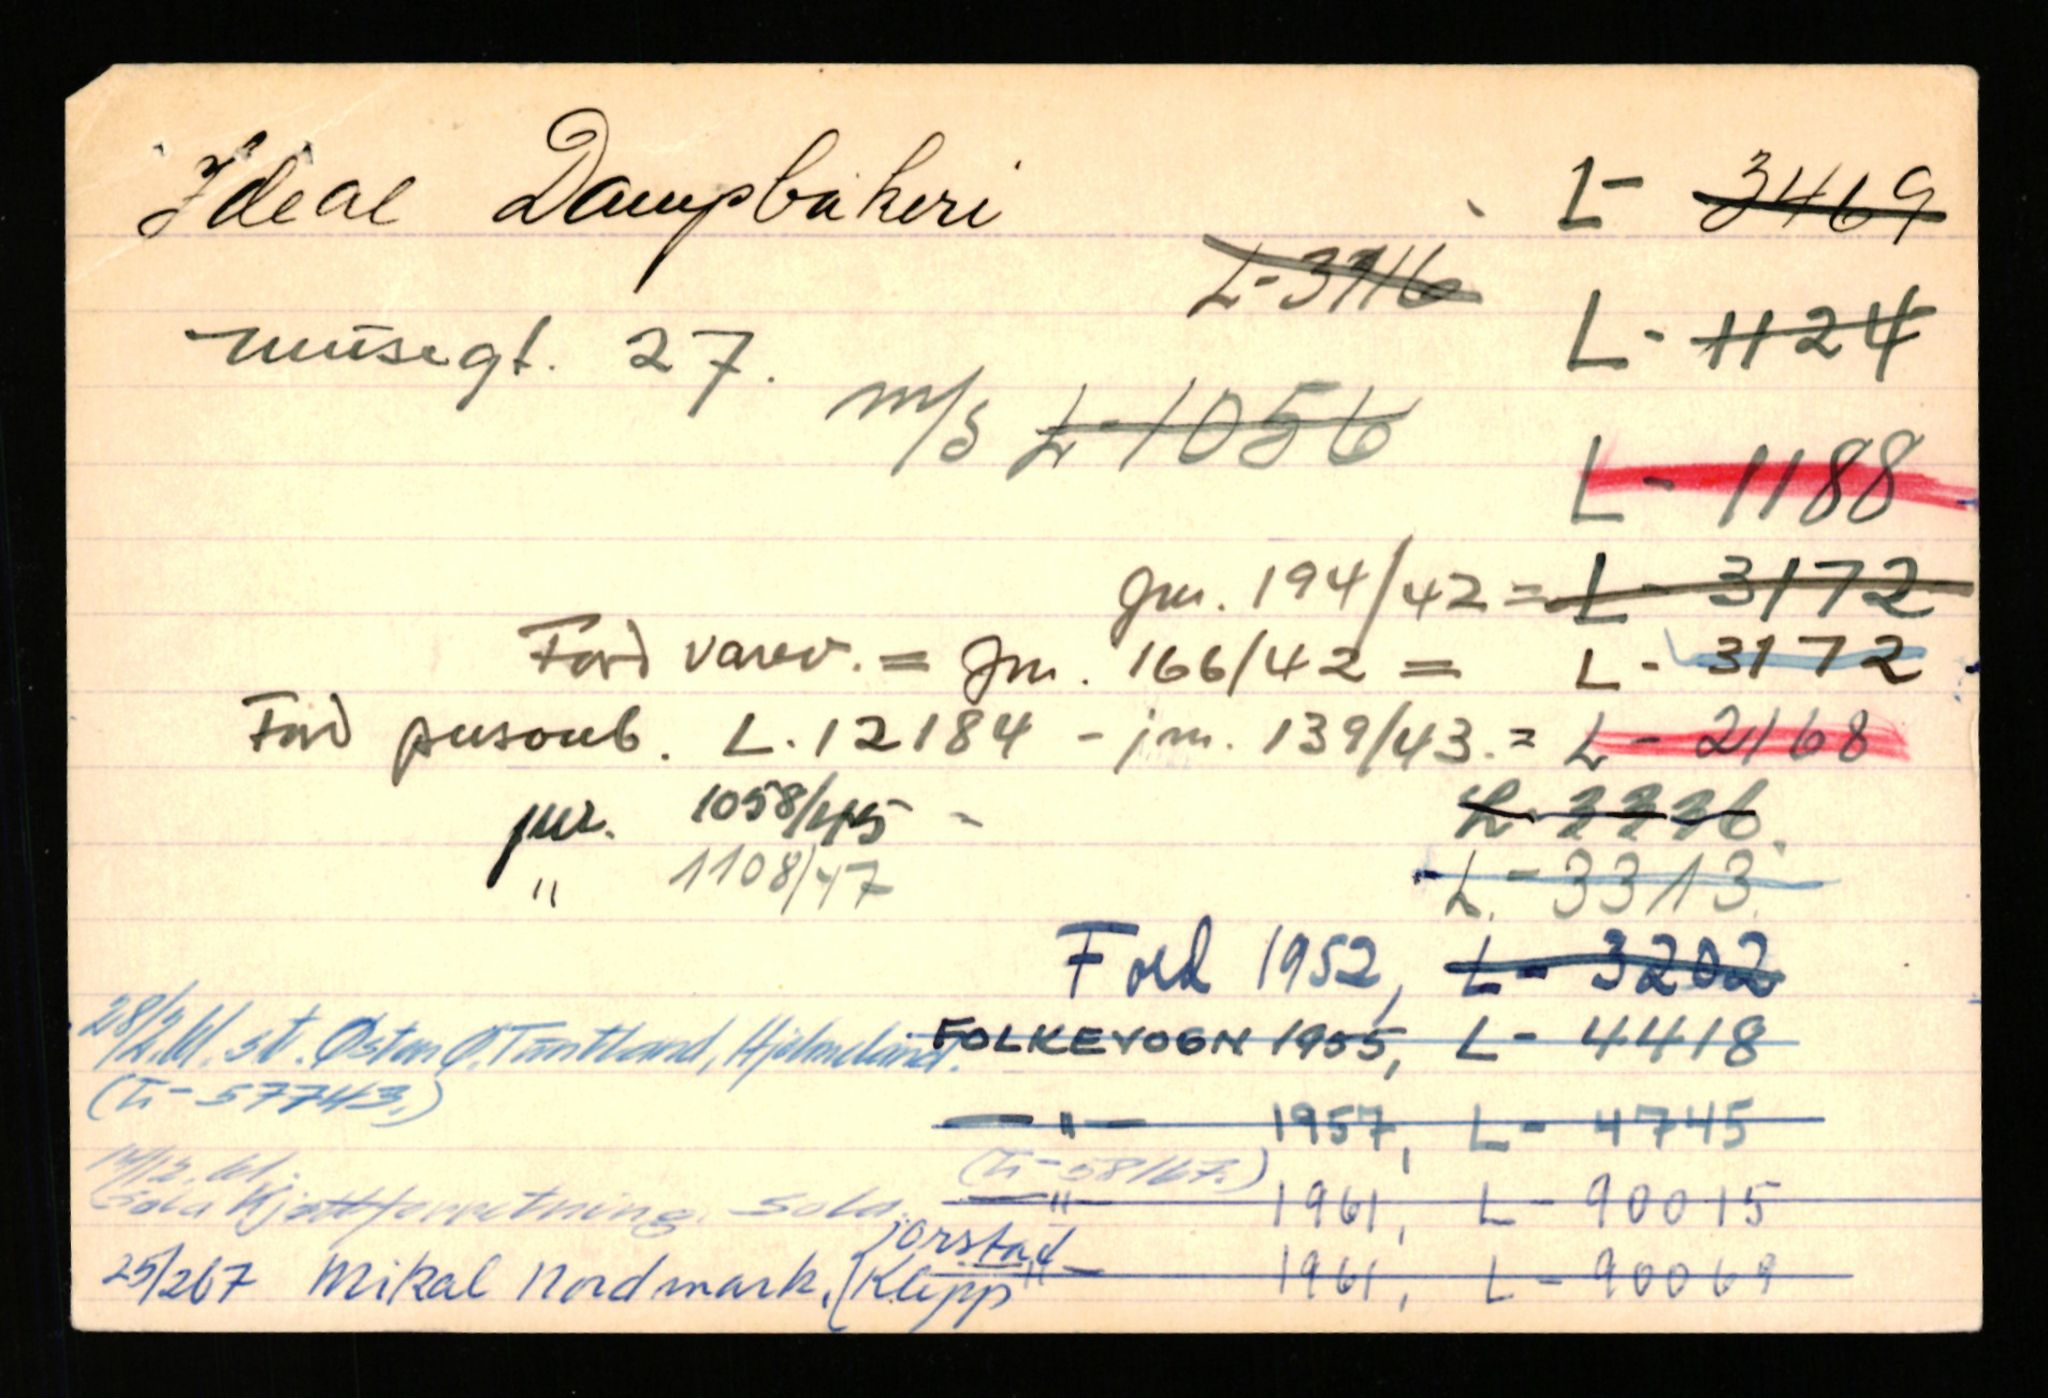 Ideal Dampbakeri L- 3469
L-3716
Musegt. 27. L- 1124
m/s L-1056
L- 1188
Jnr. 194/42 = L- 3172
Ford varev. = Jnr. 166/42 = L- 3172
Ford personb. L.12184 - jnr. 139/43. = L- 2168
jnr. 1058/45 -
" 1108/47 L.- 3313.
Ford 1952, L- 3202
28/2.61. st. Østen Ø. Tøntland, Hjelmeland. FOLKEVOGN 1955, L- 4418
(L-57743.)
—"— 1957, L- 4745
14/12.61. (L-58167.)
Sola Kjøttforretning. Sola. —"— 1961, L- 90015
25/267 Mikal Nordmark, Jorstad Klepp —"— 1961, L- 90069